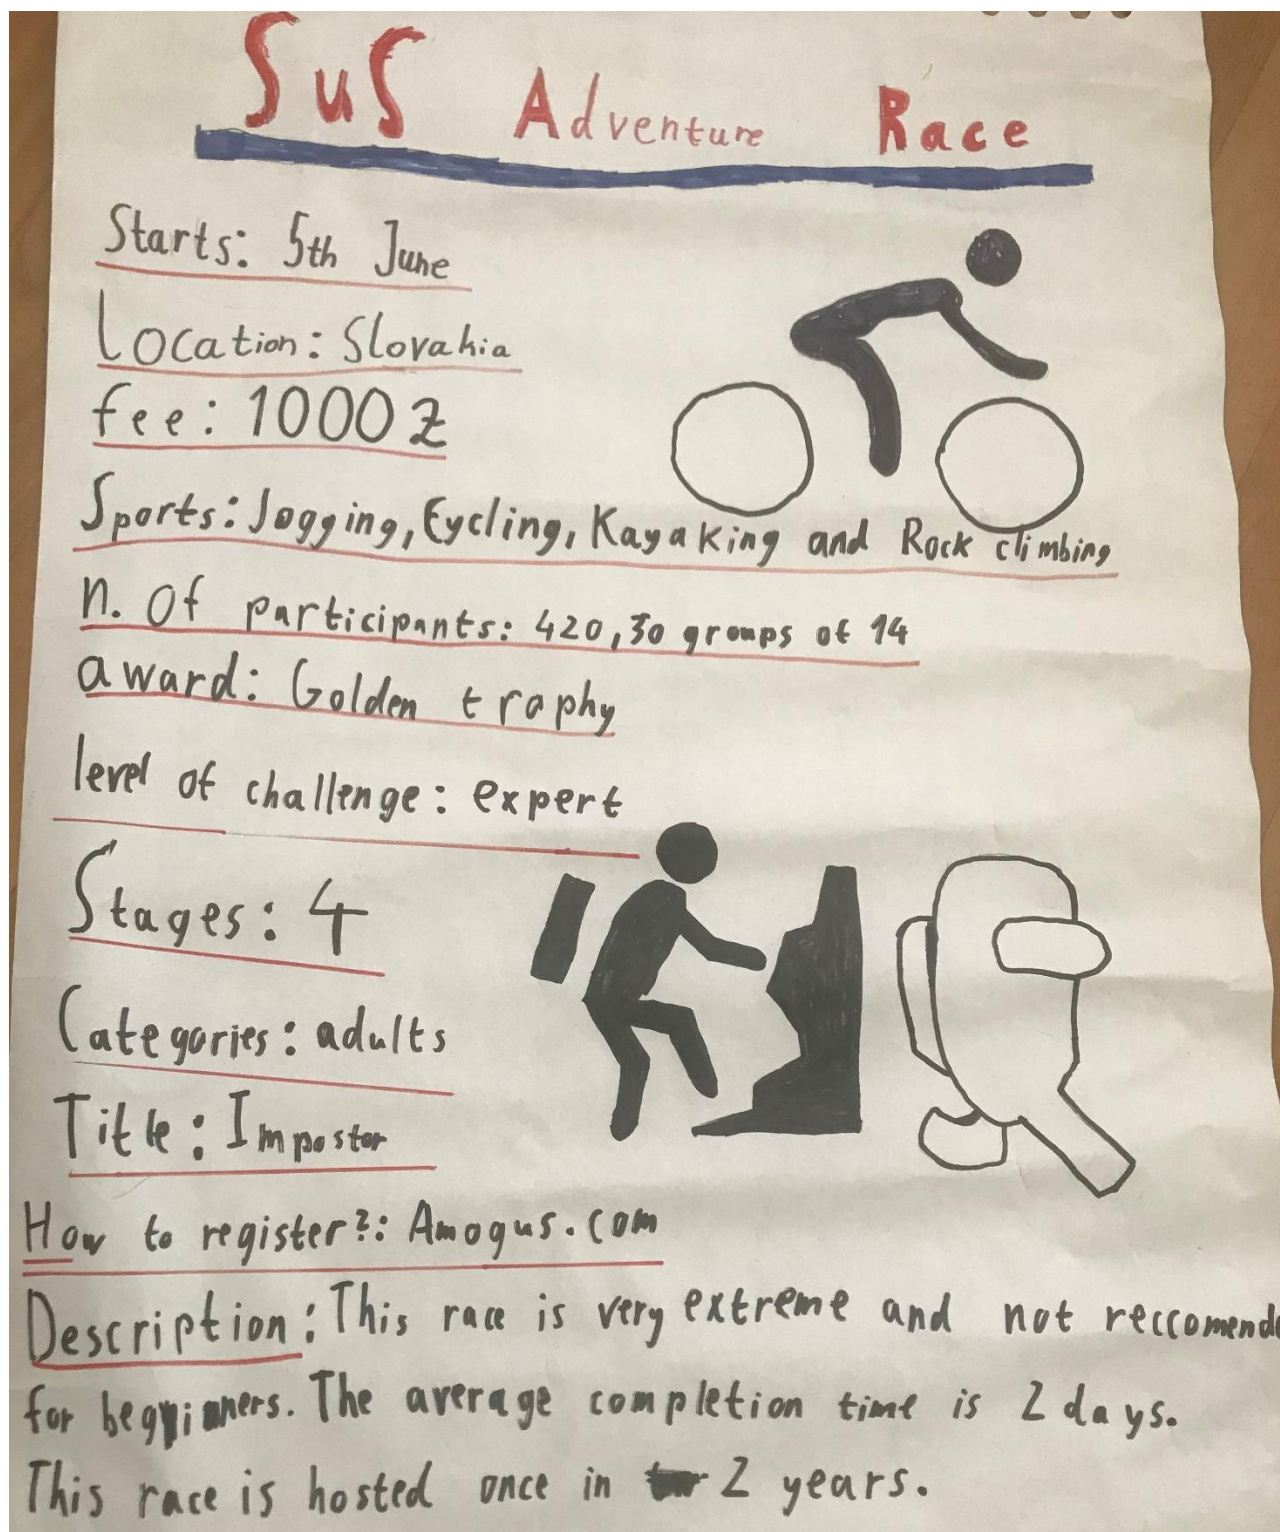 SuS Adventure Race
Starts: 5th June
Location: Slovakia
fee: 1000 Z
Sports: Jogging, Cycling, Kayaking and Rock climbing
n. Of participants: 420, 30 groups of 14
award: Golden trophy
level of challenge: expert
Stages: 4
Categories: adults
Title: Impostor
How to register?: Amogus.com
Description: This race is very extreme and not reccomende
for begginners. The average completion time is 2 days.
This race is hosted once in 2 years.